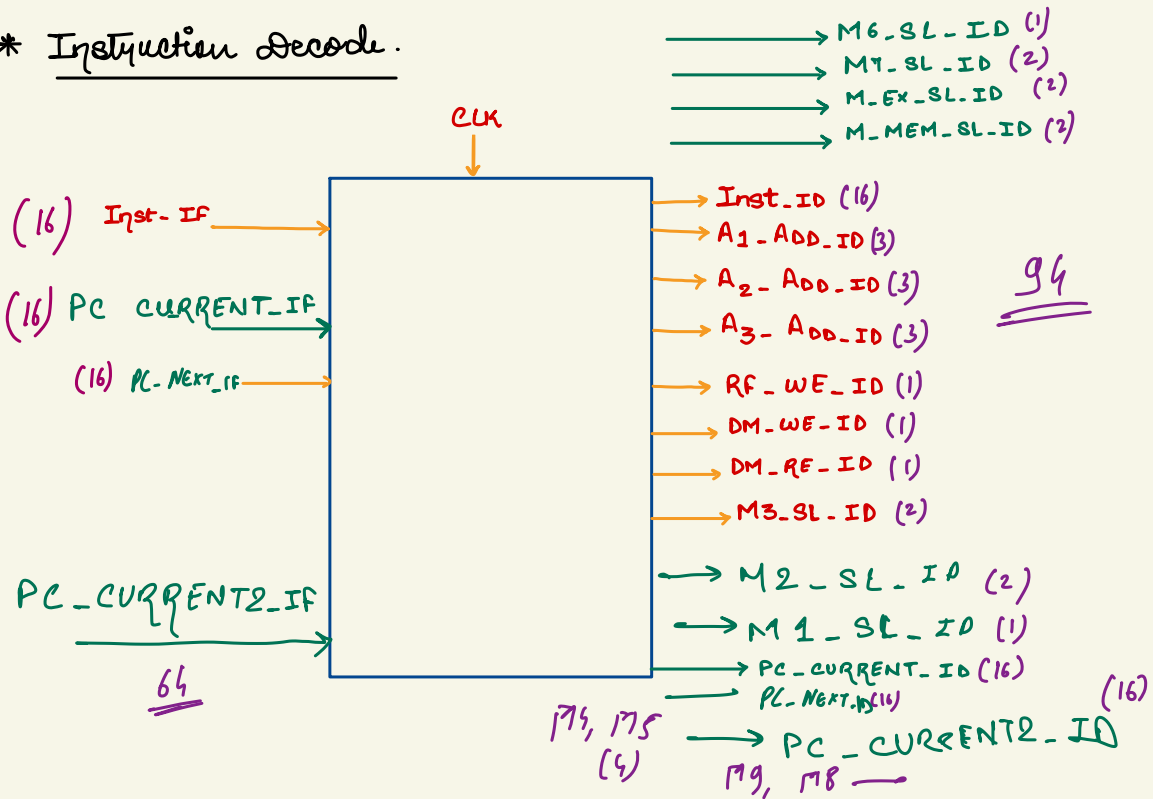 * Instruction Decode.
M6_SL_ID (1)
M7_SL_ID (2)
M_EX_SL_ID (2)
M_MEM_SL_ID (2)
CLK
(16) Inst-IF
(16) PC CURRENT_IF
(16) PC-NEXT_IF
PC_CURRENT2_IF
64
Inst_ID (16)
A1_ADD_ID (3)
A2_ADD_ID (3)
A3_ADD_ID (3)
RF_WE_ID (1)
DM_WE_ID (1)
DM_RE_ID (1)
M3_SL_ID (2)
94
M2_SL_ID (2)
M1_SL_ID (1)
PC_CURRENT_ID (16)
PC_NEXT_ID (16)
PC_CURRENT2_ID (16)
M4, M5
(4)
M9, M8